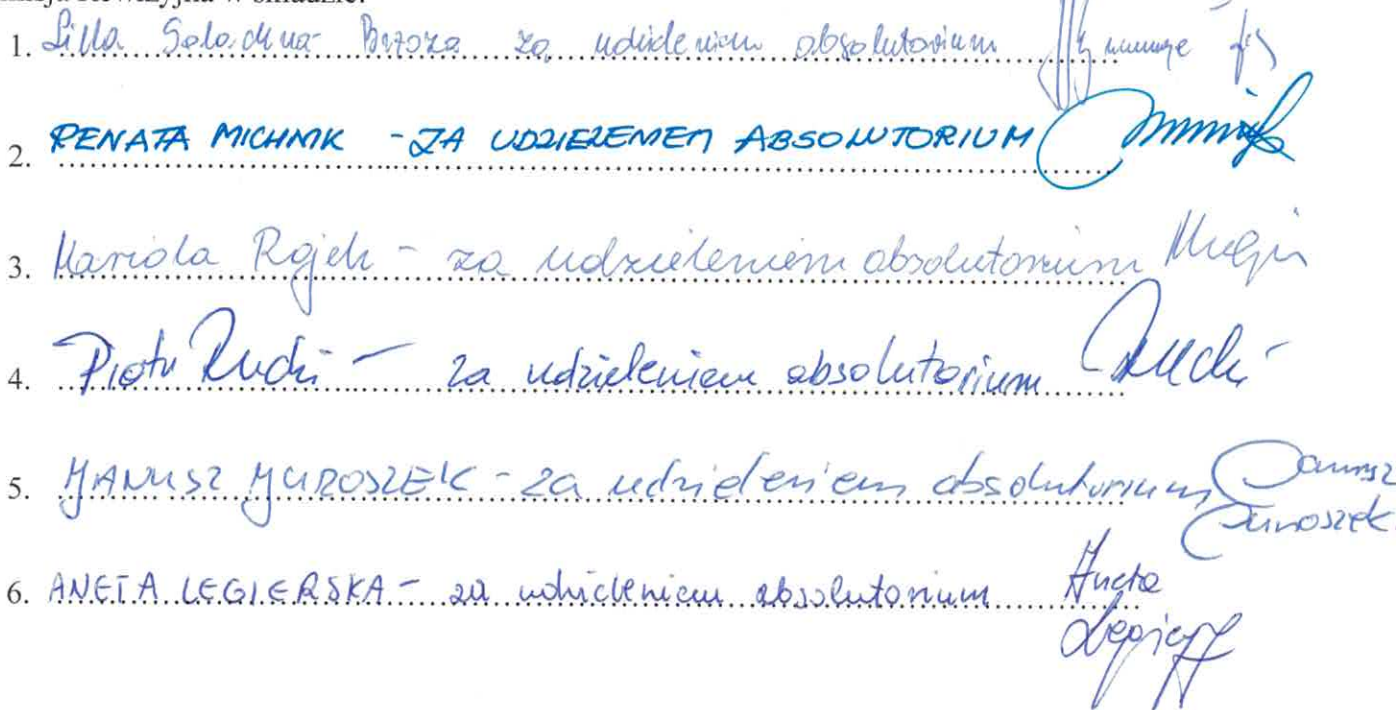 1. Lilla Salachna-Brzoza za udzieleniem absolutorium
2. RENATA MICHNIK - ZA UDZIELENIEM ABSOLUTORIUM
3. Mariola Rojek - za udzieleniem absolutorium
4. Piotr Rucki - za udzieleniem absolutorium Rucki
5. JANUSZ JUROSZEK - za udzieleniem absolutorium Janusz
Juroszek
6. ANETA LEGIERSKA - za udzieleniem absolutorium Aneta